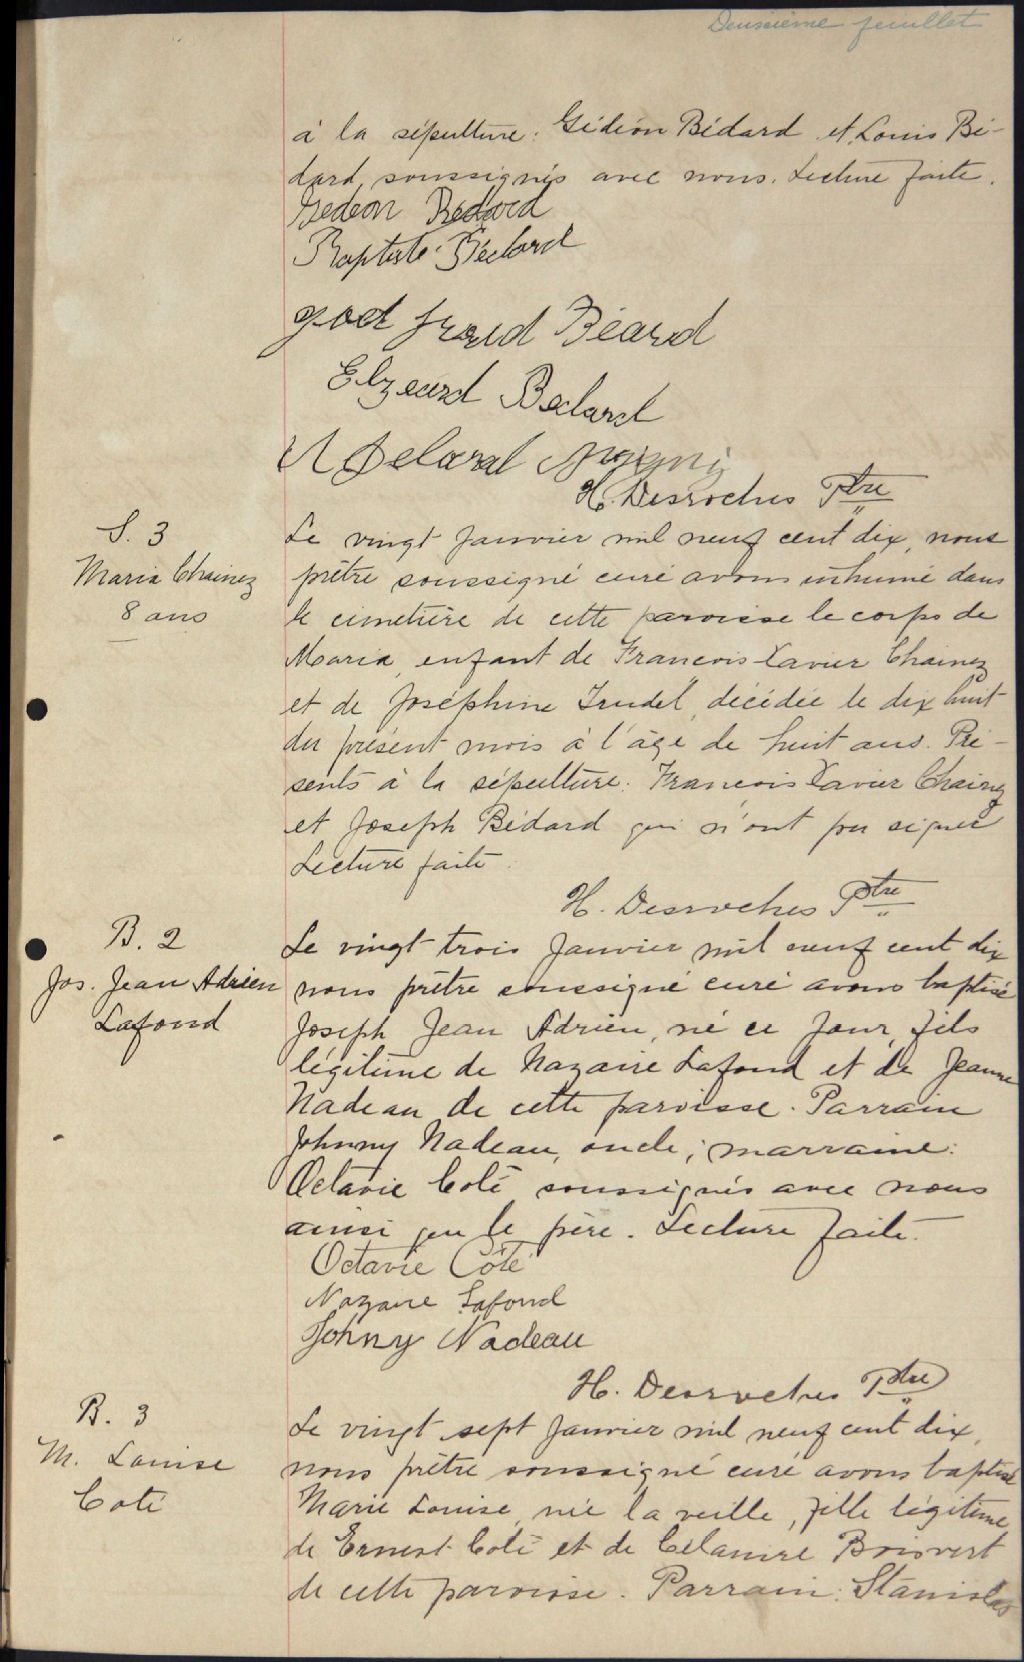 Deuxième feuillet
à la sépulture: Gédéon Bédard et Louis Bé-
dard, soussignés avec nous. Lecture faite.
Gedeon Bedard
Baptiste Bédard
god froid Béard
Elzeard Bedard
H. Desroches Ptre
S. 3
Maria Chainez
8 ans
Le vingt janvier mil neuf cent dix, nous
prêtre soussigné curé avons inhumé dans
le cimetière de cette paroisse le corps de
Maria, enfant de François-Xavier Chainez
et de Joséphine Trudel, décédée le dix huit
du présent mois à l'âge de huit ans. Pré-
sents à la sépulture: François Xavier Chainez
et Joseph Bédard qui n'ont pu signer
Lecture faite.
H. Desroches Ptre
B. 2
Jos. Jean Adrien
Lafond
Le vingt trois janvier mil neuf cent dix
nous prêtre soussigné curé avons baptisé
Joseph Jean Adrien, né ce jour, fils
légitime de Nazaire Lafond et de Jeanne
Nadeau de cette paroisse. Parrain
Johnny Nadeau, oncle; marraine:
Octavie Coté soussignés avec nous
ainsi que le père. Lecture faite.
Octavie Côté
Nazaire Lafond
Johny Nadeau
H. Desroches Ptre
B. 3
M. Louise
Coté
Le vingt sept janvier mil neuf cent dix,
nous prêtre soussigné curé avons baptisé
Marie Louise, née la veille, fille légitime
de Ernest Coté et de Célanire Boisvert
de cette paroisse. Parrain: Stanislas